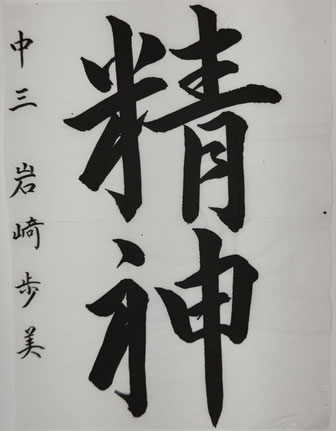 精神
中三 岩崎歩美